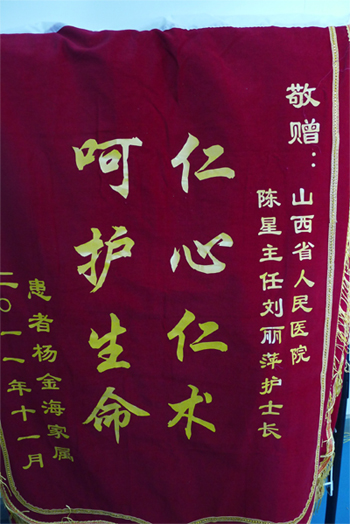 敬赠：山西省人民医院
陈星主任刘丽萍护士长
仁心仁术
呵护生命
患者杨金海家属
二〇一一年十一月